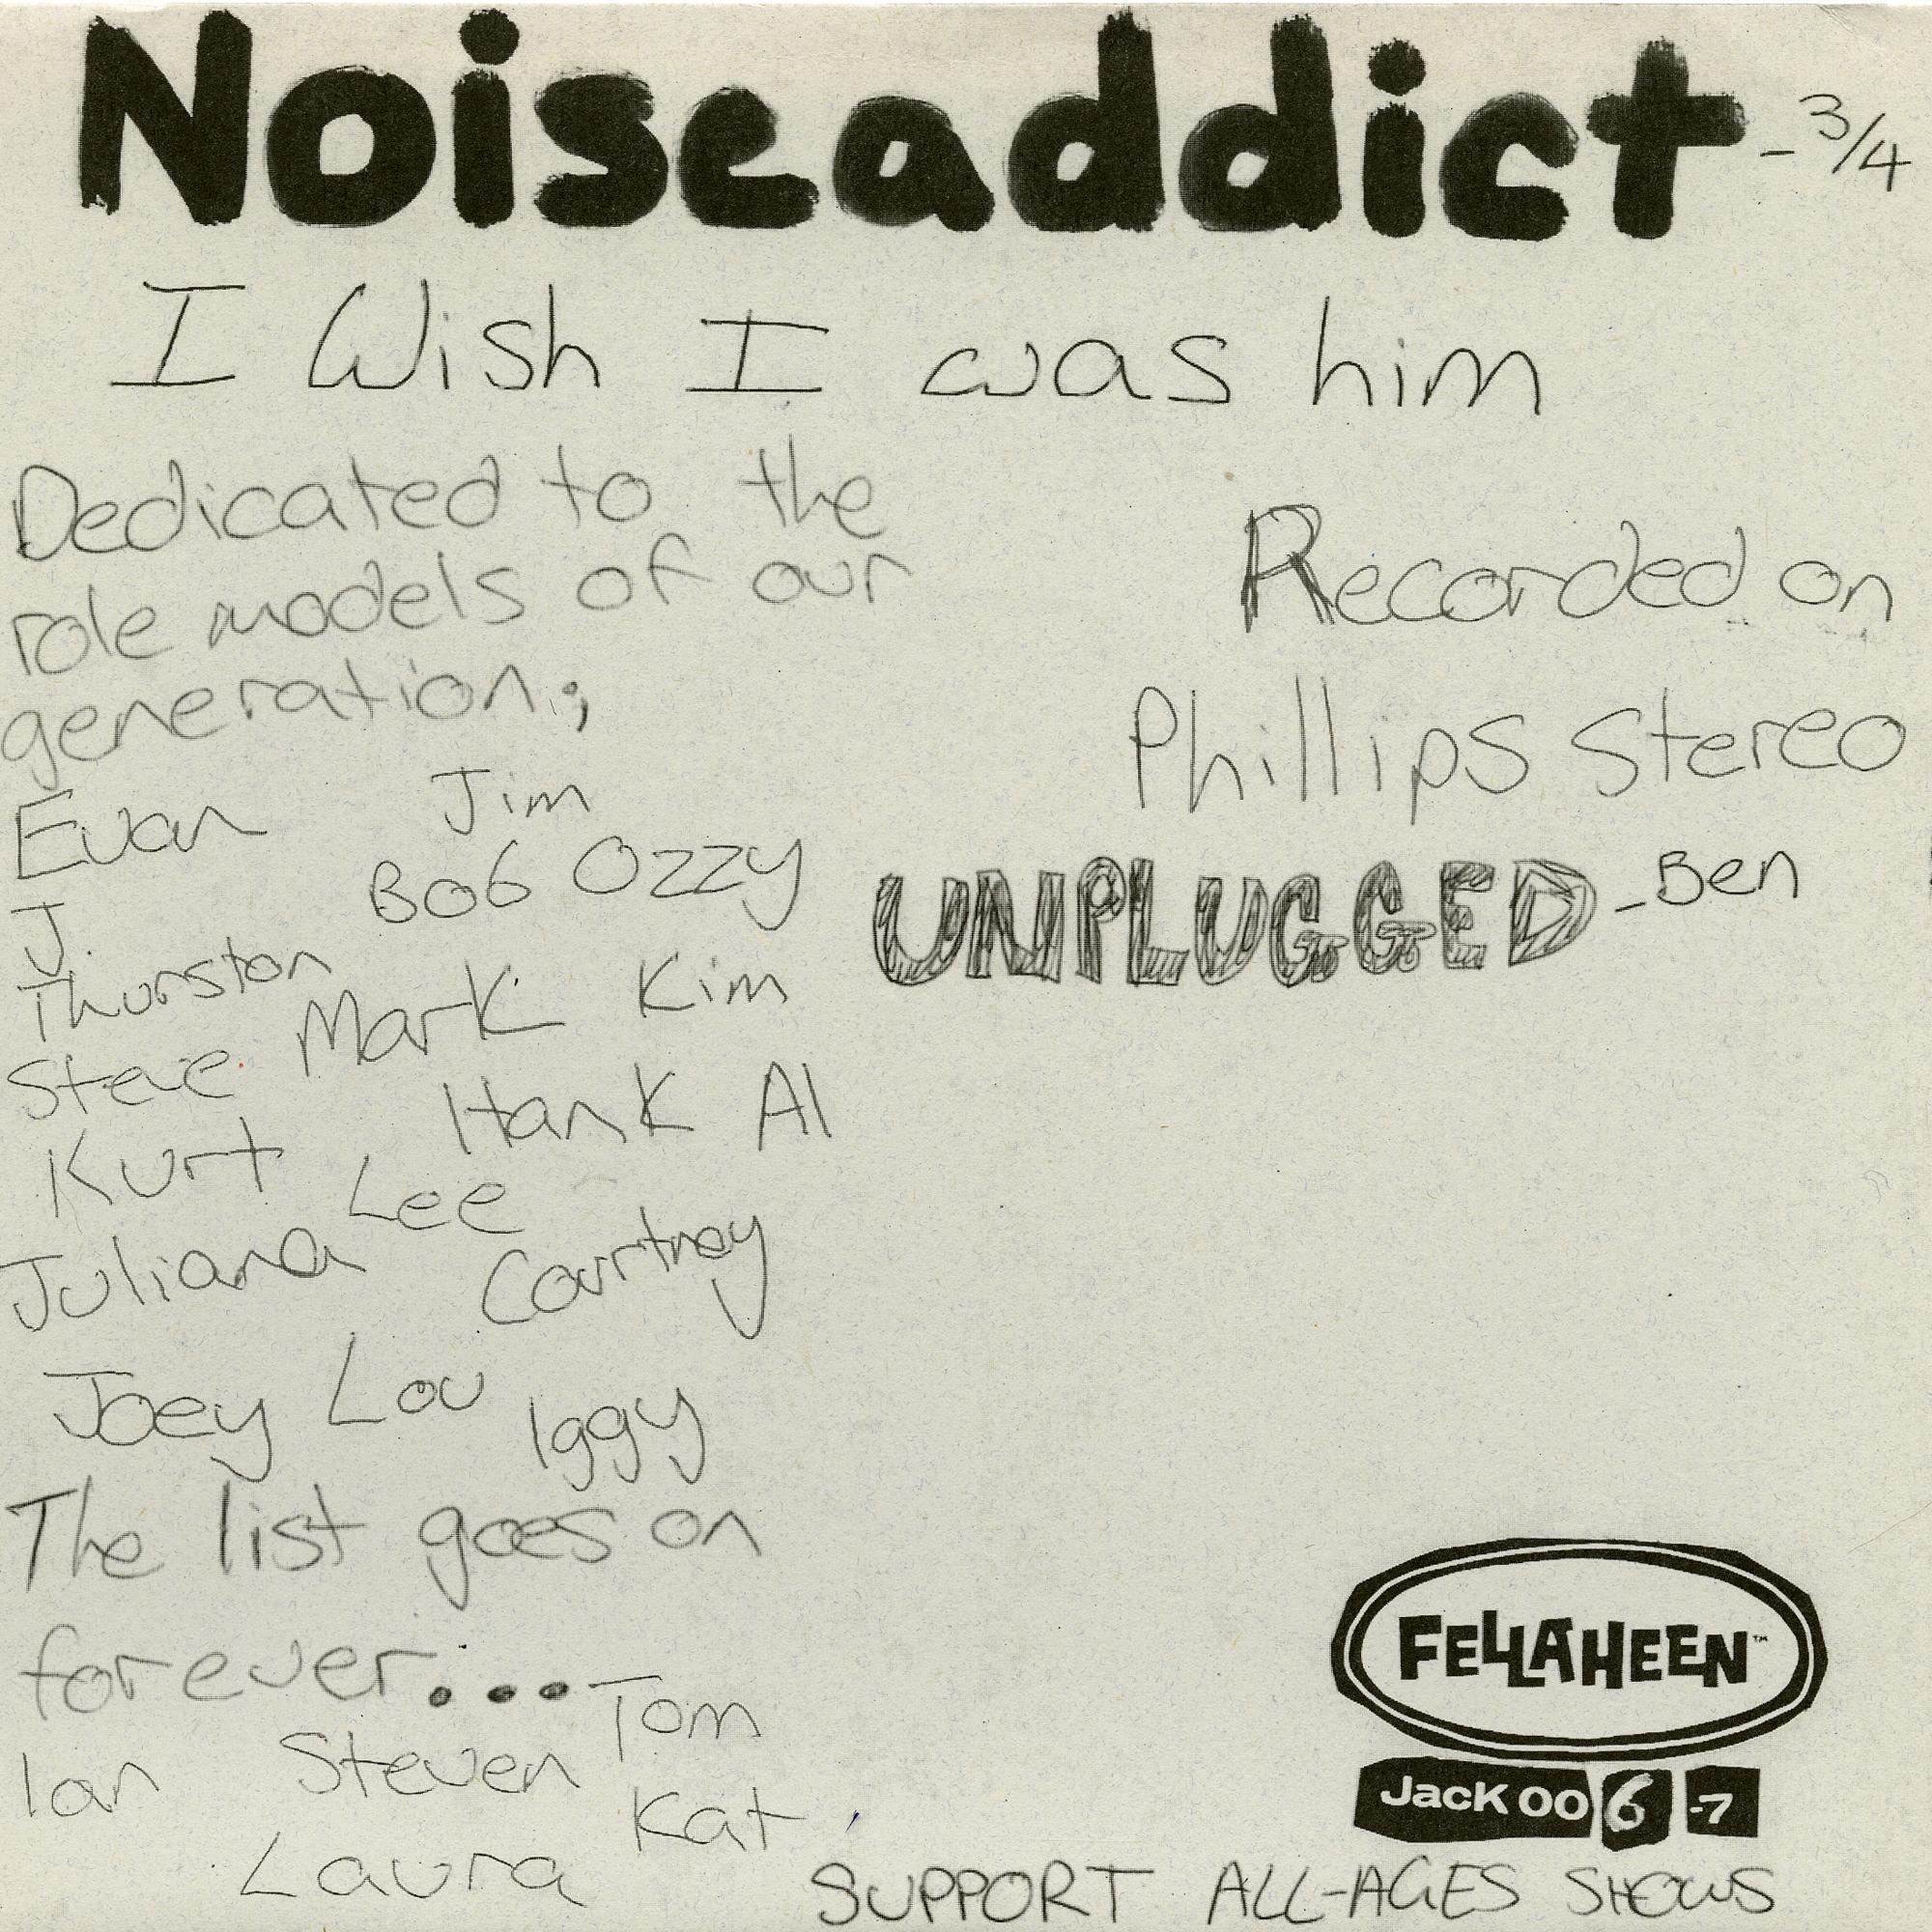 Noiseaddict -3/4
I Wish I was him
Dedicated to the
role models of our
generation;
Evan Jim
J. Bob Ozzy
Thurston Mark Kim
Steve Hank Al
Kurt Lee
Juliana Courtney
Joey Lou Iggy
The list goes on
forever... Tom
Ian Steven Kat
Laura
Recorded on
Phillips Stereo
UNPLUGGED -Ben
FELLAHEEN™
Jack 006-7
SUPPORT ALL-AGES SHOWS